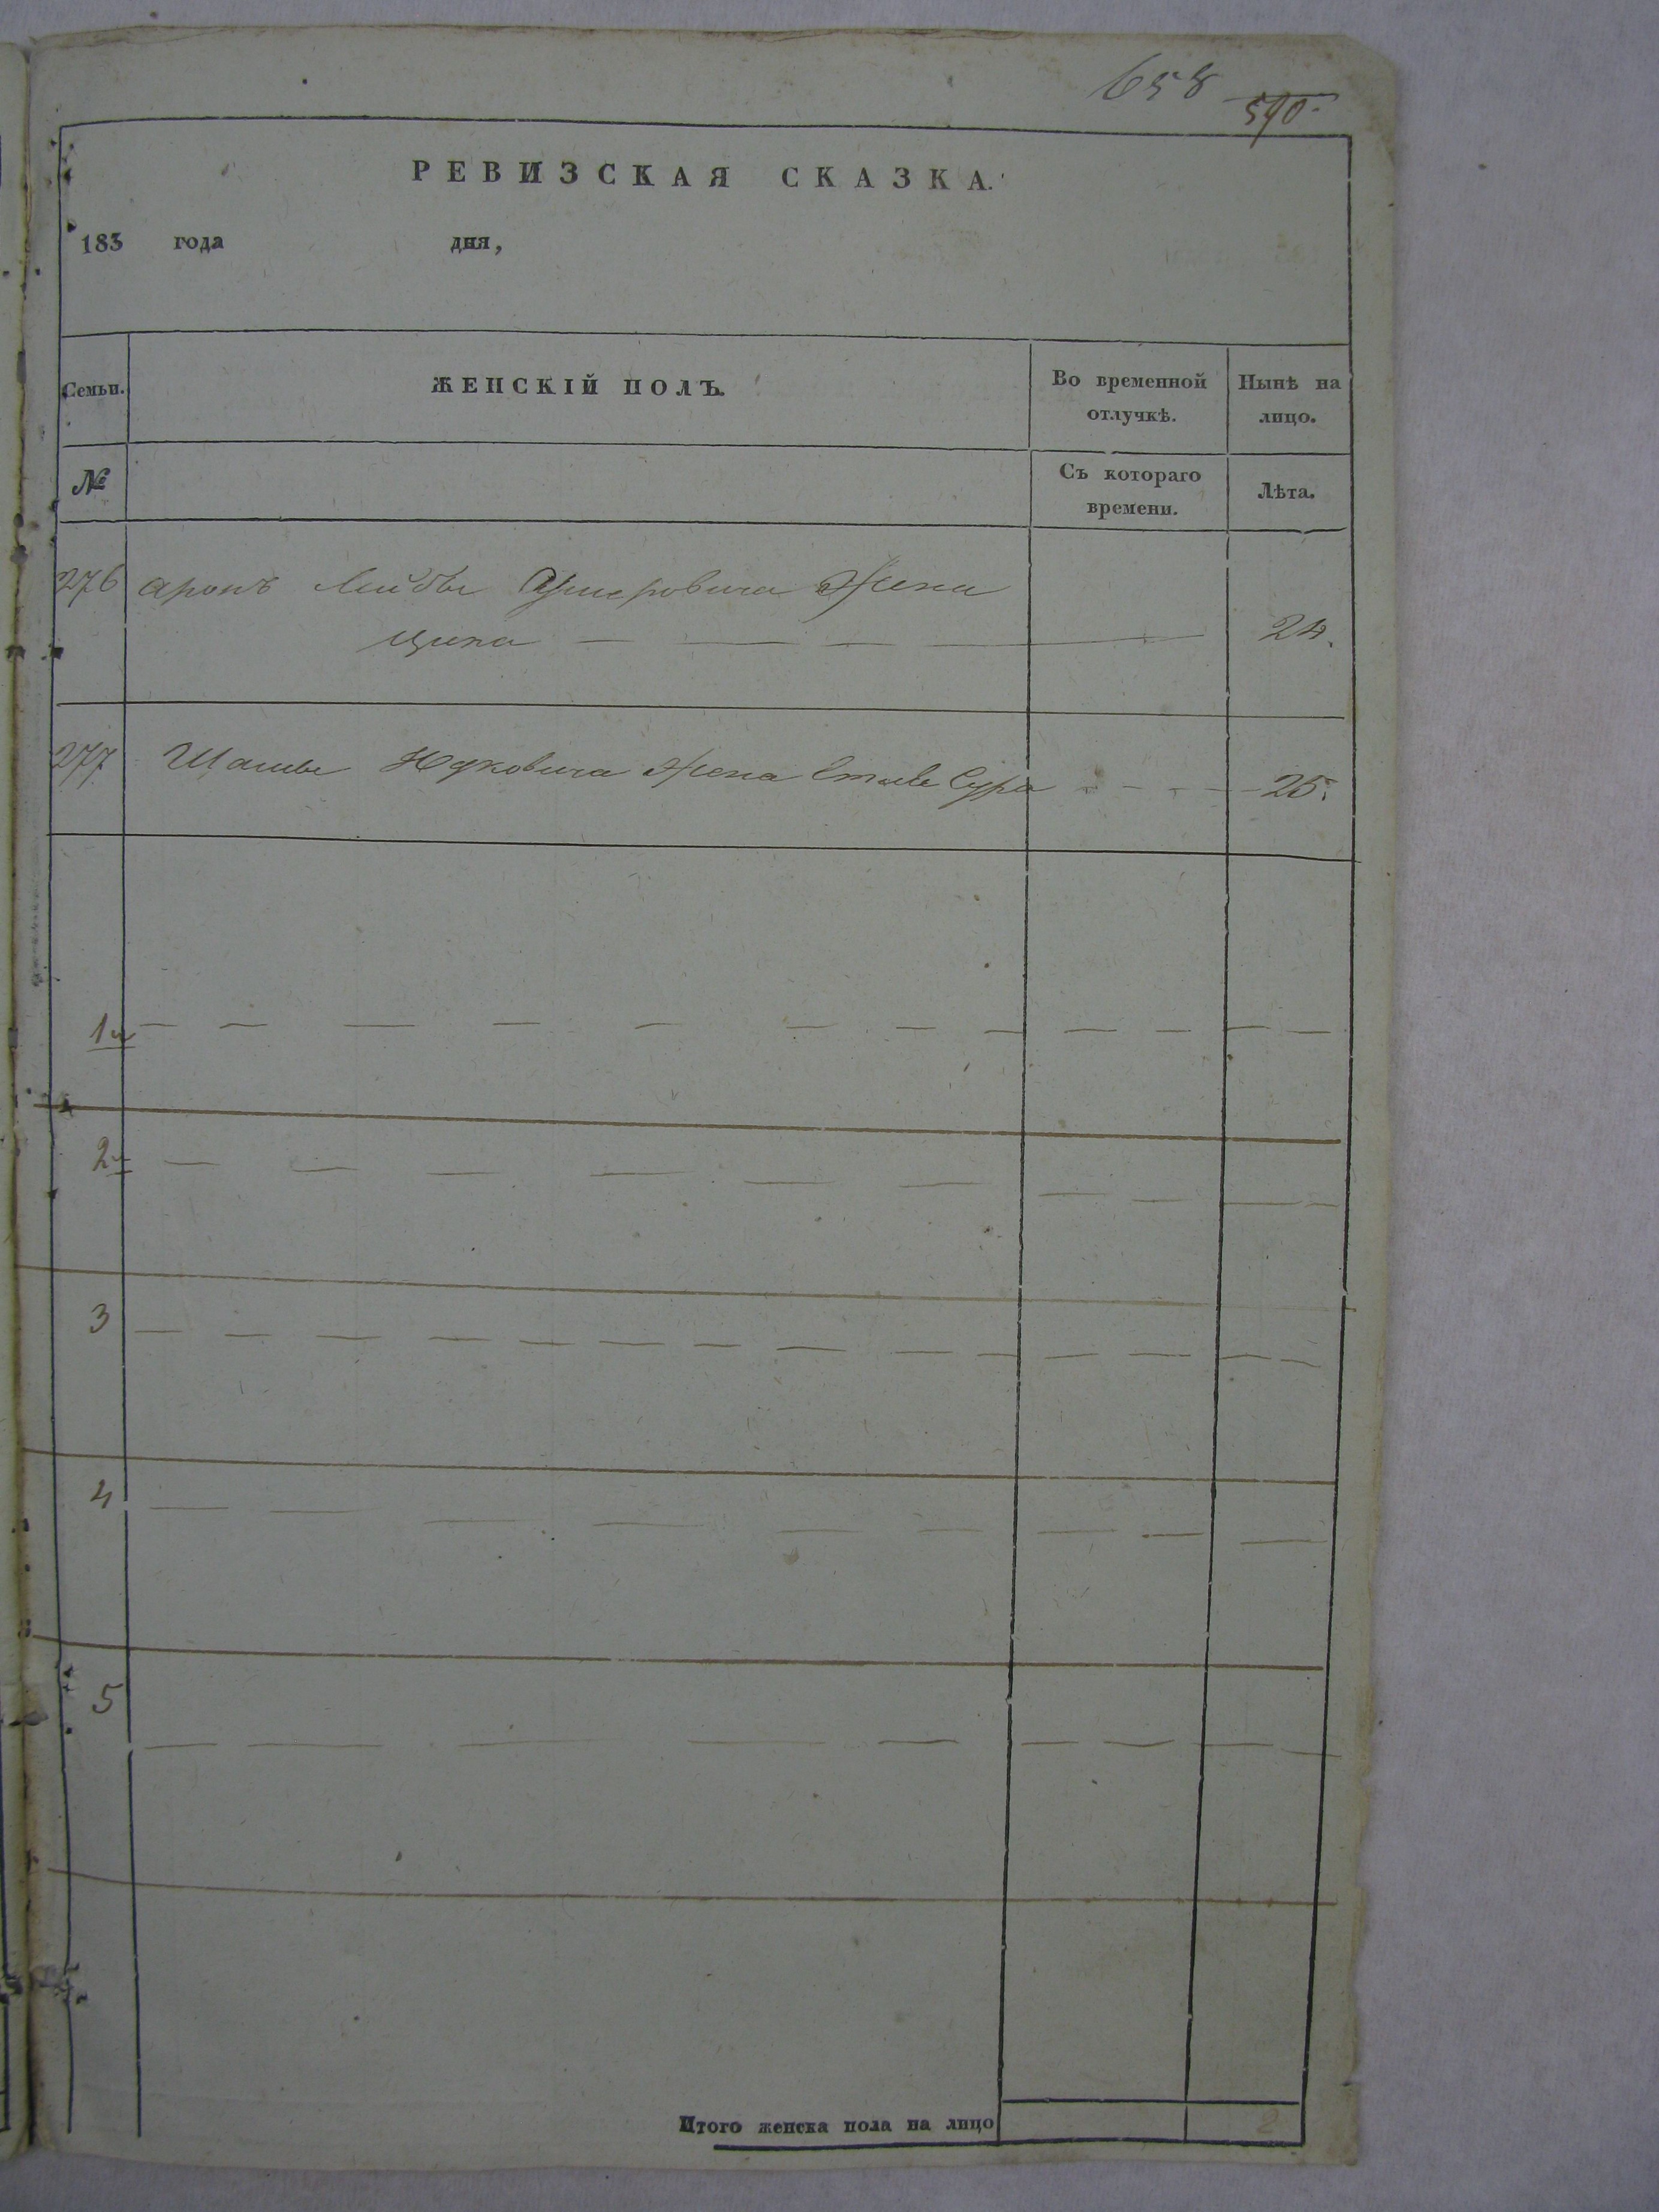 658
590
РЕВИЗСКАЯ СКАЗКА.
183 года дня,
Семьи.
ЖЕНСКІЙ ПОЛЪ.
Во временной отлучкѣ.
Нынѣ на лицо.
№
Съ котораго времени.
Лѣта.
276 Аронъ Лейбы жена
Ципа 24.
277 Юдковича жена Сура 25.
1й
2й
3
4
5
Итого женска пола на лицо 2